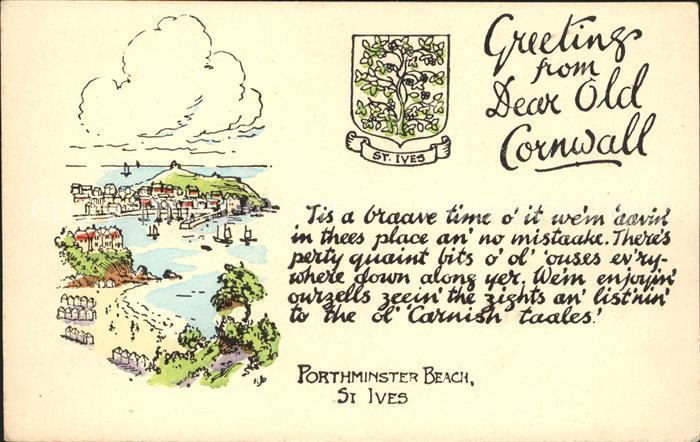 Greetings
from
Dear Old
Cornwall
ST. IVES
'Tis a braave time o' it we'm 'aavin'
in thees place an' no mistaake. There's
perty quaint bits o' ol' 'ouses ev'ry-
where down along yer. We'm enjoyin'
ourzells zeein' the zights an' list'nin'
to the ol' 'Carnish' taales!
PORTHMINSTER BEACH,
ST IVES